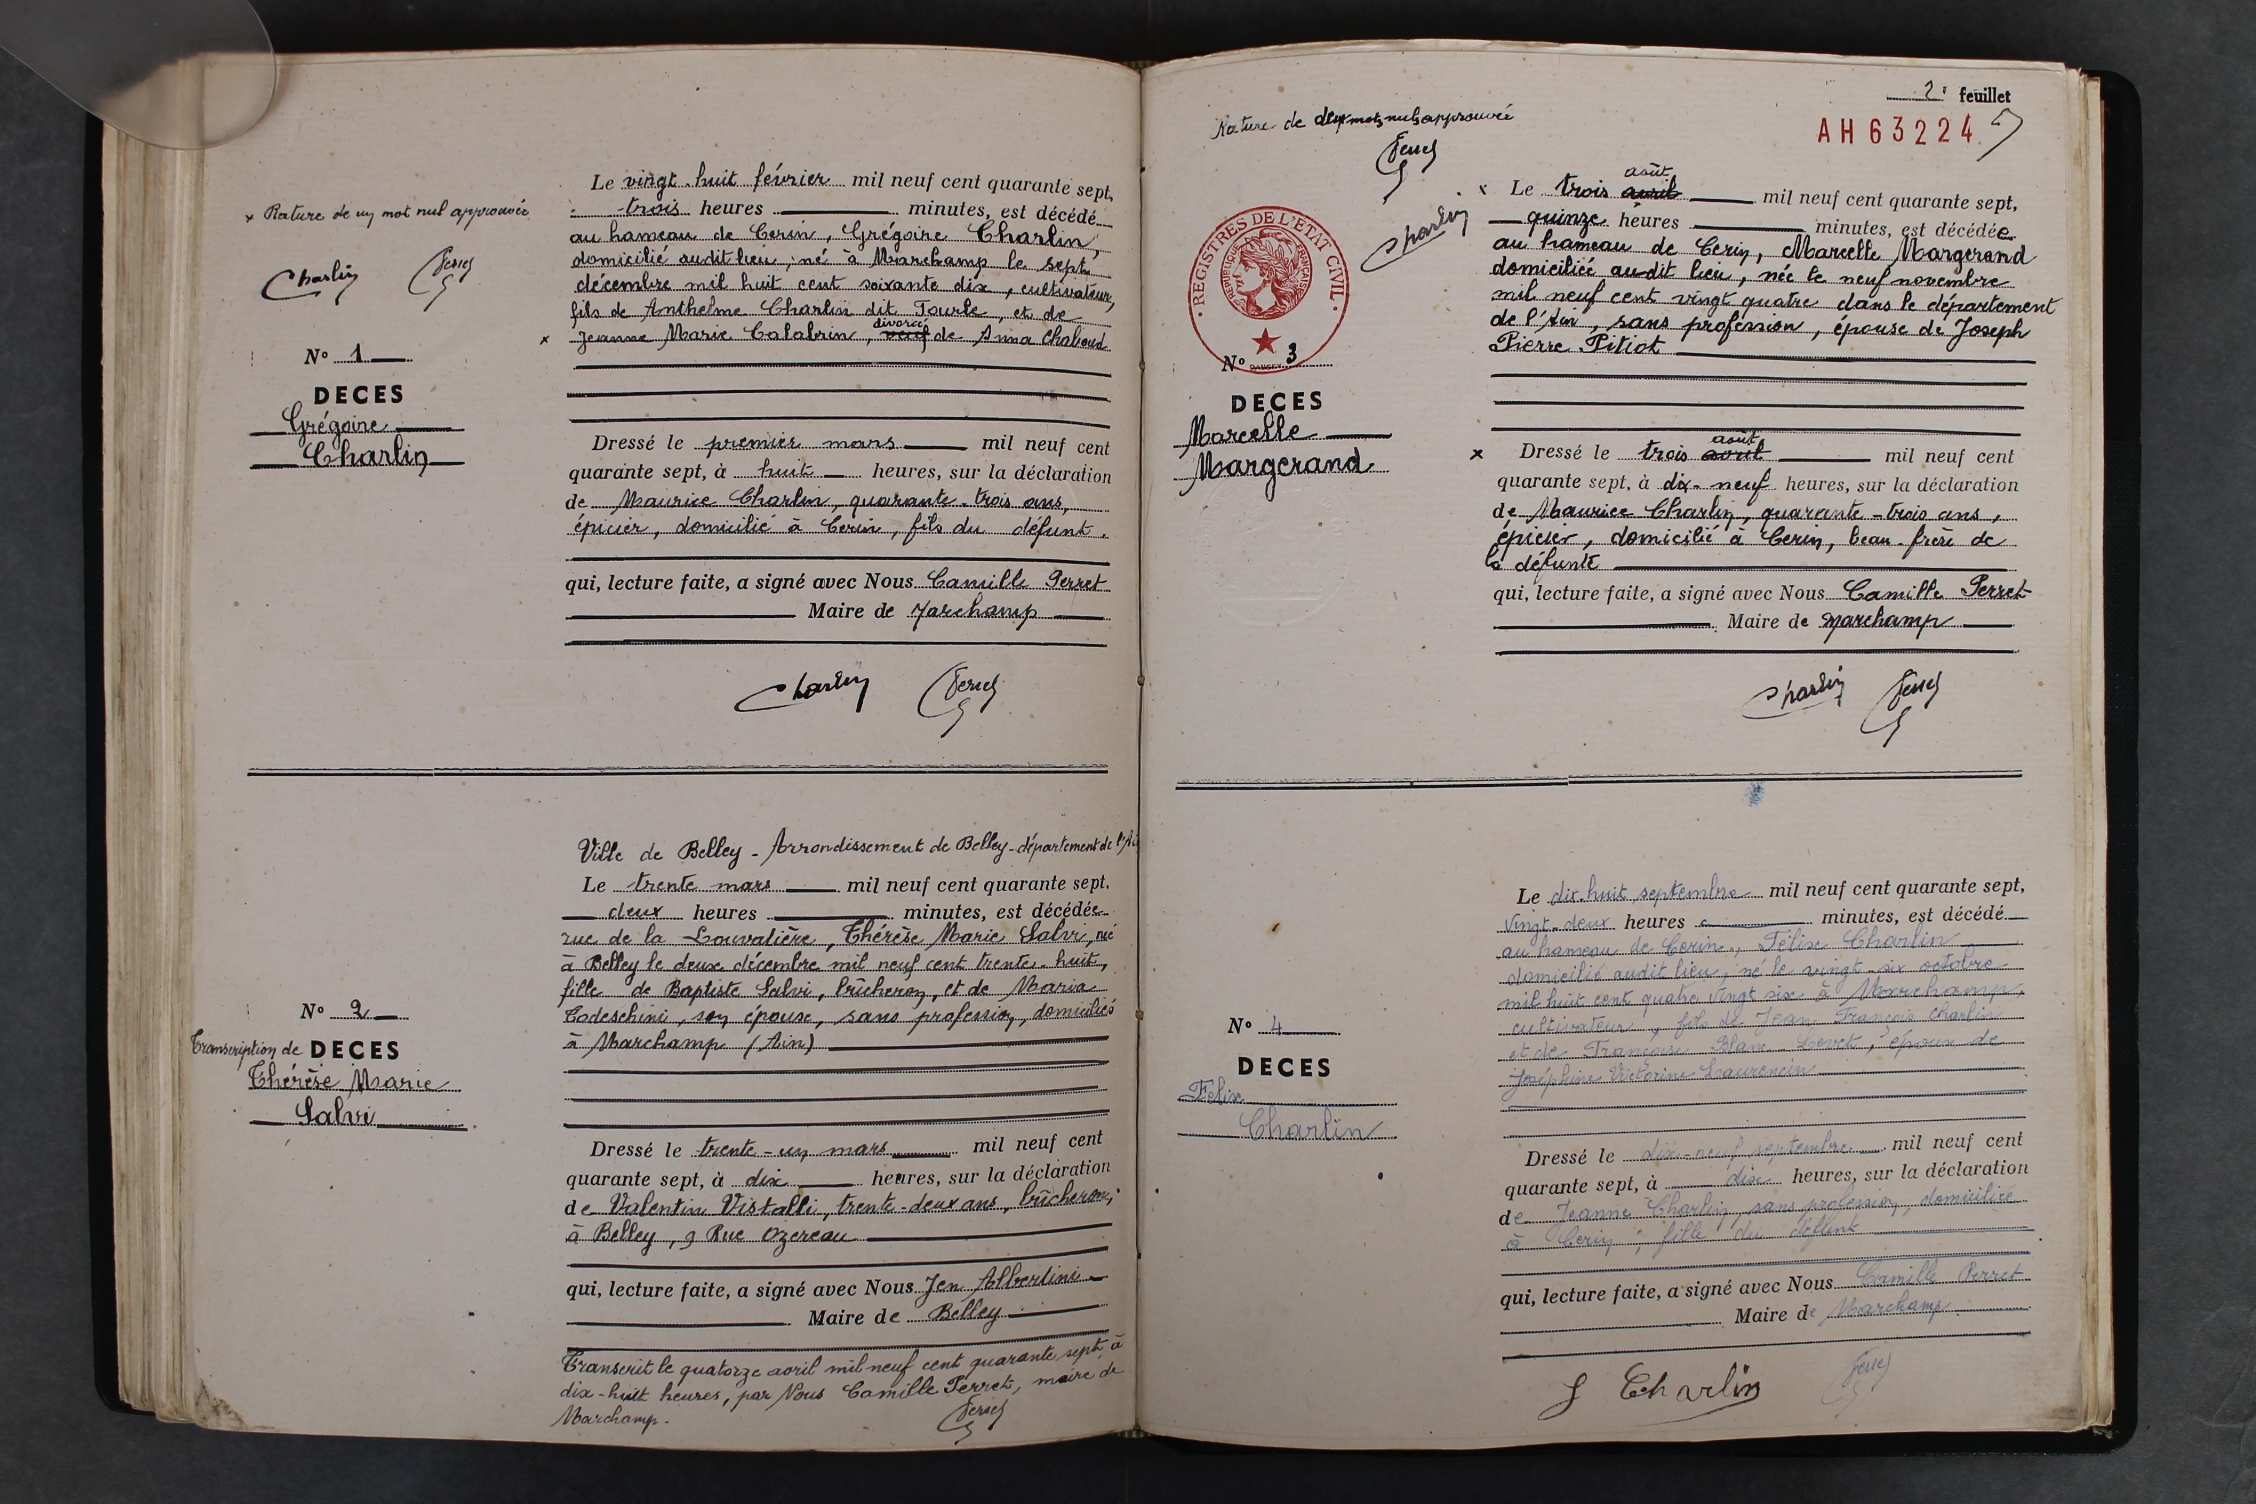 Le vingt-huit février mil neuf cent quarante sept,
trois heures minutes, est décédé
au hameau de Cerin, Grégoire Charlin,
domicilié audit lieu, né à Marchamp le sept
décembre mil huit cent soixante dix, cultivateur,
fils de Anthelme Charlin dit Tourte, et de
divorcé
x Jeanne Marie Calabrin, veuf de Anna Chaboud
x Rature de un mot nul approuvée
Charlin Perret
N° 1
DECES
Grégoire
Charlin
Dressé le premier mars mil neuf cent
quarante sept, à huit heures, sur la déclaration
de Maurice Charlin, quarante-trois ans,
épicier, domicilié à Cerin, fils du défunt.
qui, lecture faite, a signé avec Nous Camille Perret
Maire de Marchamp
Charlin Perret
Ville de Belley - Arrondissement de Belley - département de l'Ai
Le trente mars mil neuf cent quarante sept,
deux heures minutes, est décédée
rue de la Louvatière, Thérèse Marie Salvi, née
à Belley le deux décembre mil neuf cent trente-huit,
fille de Baptiste Salvi, bûcheron, et de Maria
Todeschini, son épouse, sans profession, domiciliés
à Marchamp (Ain)
N° 2
Transcription de DECES
Thérèse Marie
Salvi
Dressé le trente-un mars mil neuf cent
quarante sept, à dix heures, sur la déclaration
de Valentin Vistalli, trente-deux ans, bûcheron,
à Belley, 9 Rue
qui, lecture faite, a signé avec Nous Jen Albertini
Maire de Belley
Transcrit le quatorze avril mil neuf cent quarante sept à
dix-huit heures, par Nous Camille Perret, maire de
Marchamp.
Perret
2e feuillet
AH 63224
Rature de deux mots nuls approuvée
Perret
Charlin
REGISTRES DE L'ETAT CIVIL
REPUBLIQUE FRANCAISE
août
x Le trois avril mil neuf cent quarante sept,
quinze heures minutes, est décédée
au hameau de Cerin, Marcelle Margerand
domiciliée audit lieu, née le neuf novembre
mil neuf cent vingt quatre dans le département
de l'Ain, sans profession, épouse de Joseph
Pierre Pitiot
N° 3
DECES
Marcelle
Margerand
août
x Dressé le trois avril mil neuf cent
quarante sept, à dix-neuf heures, sur la déclaration
de Maurice Charlin, quarante-trois ans,
épicier, domicilié à Cerin, beau-frère de
la défunte
qui, lecture faite, a signé avec Nous Camille Perret
Maire de Marchamp
Charlin Perret
Le dix-huit septembre mil neuf cent quarante sept,
vingt-deux heures minutes, est décédé
au hameau de Cerin, Félix Charlin
domicilié audit lieu, né le vingt-six octobre
mil huit cent quatre vingt six à Marchamp,
cultivateur, fils de Jean François Charlin
et de Françoise Blanc époux de
Joséphine Victorine Laurencin
N° 4
DECES
Félix
Charlin
Dressé le dix-neuf septembre mil neuf cent
quarante sept, à dix heures, sur la déclaration
de Jeanne Charlin, sans profession, domiciliée
à Cerin, fille du défunt
qui, lecture faite, a signé avec Nous Camille Perret
Maire de Marchamp
J Charlin Perret